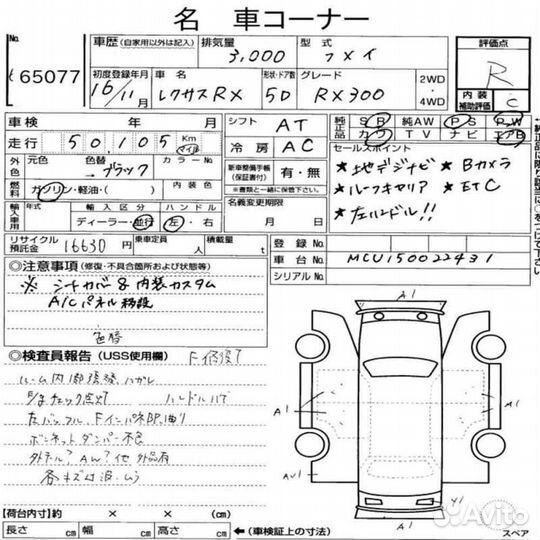 名 車コーナー
No.
65077
車歴 (自家用以外は記入)
排気量
3,000
型式
フメイ
評価点
R
内装
補助評価
C
初度登録年月
16/11月
車名
レクサスRX
形状・ドア数
5D
グレード
RX300
2WD
・
4WD
車検 年 月
シフト
AT
純正品
SR 純AW PS PW
カワ TV ナビ エアB
走行 50,105 Km マイル
冷房
AC
セールスポイント
外色
元色
色替
ブラック
カラーNo.
新車整備手帳
(保証書付)
有・無
※書類と一緒に保管下さい。
★地デジナビ ★Bカメラ
★ルーフキャリア ★ETC
★左ハンドル!!
燃料
ガソリン・軽油・( )
内装色
名義変更期限
月 日
輸入車用
年式
輸入区分
ハンドル
ディーラー・並行
左・右
リサイクル
預託金
16630円
乗車定員
人
積載量
t
登録No.
車台No.
MCU150022431
シリアルNo.
◎注意事項 (修復・不具合箇所および状態等)
※ シートカバー&内装カスタム
A/Cパネル移設
色替
◎検査員報告 (USS使用欄)
F修復て
ハンドルハゲ
ボンネットダンパー不良
A1
A1
A1
A1
【荷台内寸】約 × × (cm)
長さ cm
幅 cm
高さ cm
(車検証上の寸法)
スペア
Avito